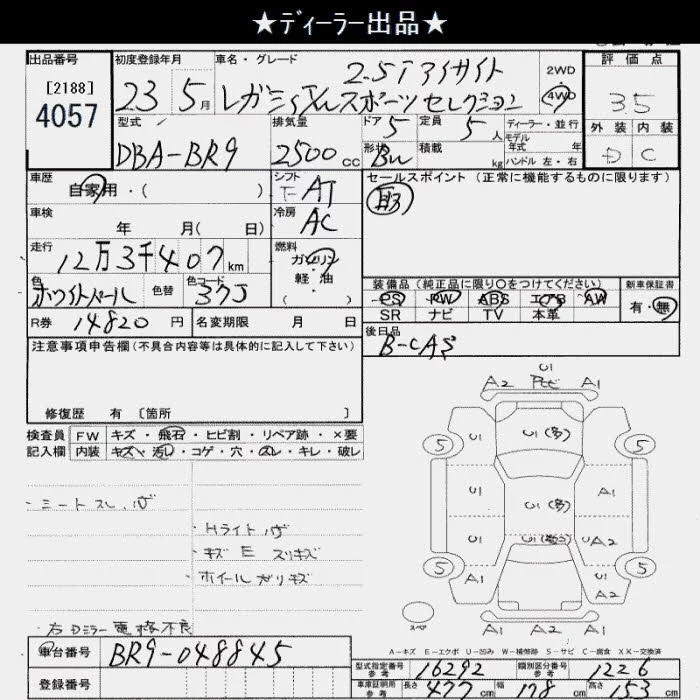 ★ディーラー出品★
出品番号
[2188]
4057
初度登録年月
23 5月
車名・グレード
2.5i アイサイト
レガシィ スポーツセレクション
2WD
・
4WD
評価点
3.5
外装 内装
D C
型式
DBA-BR9
排気量
2500cc
ドア 5
形状 Bw
定員 5人
積載 kg
ディーラー・並行
モデル
年式 年
ハンドル 左・右
車歴
自家用・( )
シフト
F AT
車検
年 月( 日)
冷房
AC
セールスポイント (正常に機能するものに限ります)
取
走行
12万3千407km
燃料
ガソリン
・
軽・油
( )
色
ホワイトパール
色替
色コード
37J
装備品 (純正品に限り○をつけてください)
PS PW ABS エアB AW
SR ナビ TV 本革
新車保証書
有・無
R券 14820円
名変期限 月 日
後日品
B-CAS
注意事項申告欄 (不具合内容等は具体的に記入して下さい)
修復歴 有 〔箇所 〕
検査員
記入欄
FW キズ・飛石・ヒビ割・リペア跡・×要
内装 キズ・汚レ・コゲ・穴・スレ・キレ・破レ
・シートスレ,ハゲ
・Hライトハゲ
・キズ E スリキズ
・ホイールガリキズ
右Dミラー電格不良
U1
A2 トビ A1
U1 U1(多)
5 5
U1 U1(多) A1
U1 U1(数コ) UA2
5 5
A1 U1
A2
A1 A2 A1
スペア
A-キズ E-エクボ U-凹み W-補修跡 S-サビ C-腐食 XX-交換済
車台番号 BR9-048845
登録番号
型式指定番号
参考
16292
類別区分番号
参考
1226
車庫証明用
参考
長さ 477cm 幅 178cm 高さ 153cm